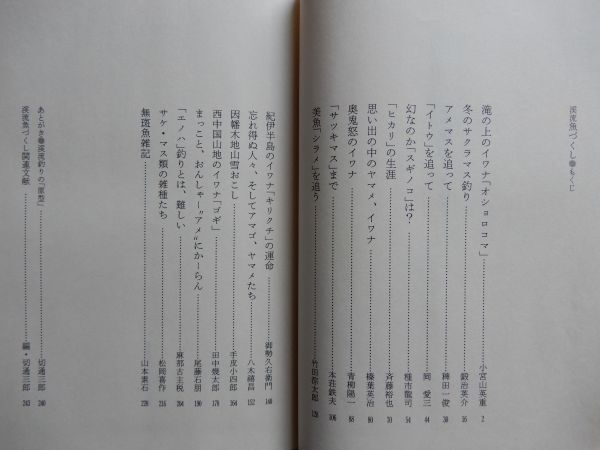 渓流魚づくし●もくじ
滝の上のイワナ「オショロコマ」……小宮山英重 2
冬のサクラマス釣り……鍛治英介 16
アメマスを追って……稗田一俊 30
「イトウ」を追って……岡 愛三 44
幻なのか「スギノコ」は?……植市龍司 54
「ヒカリ」の生涯……斉藤裕也 70
思い出の中のヤマメ、イワナ……榛葉英治 80
奥鬼怒のイワナ……青柳陽一 88
「サツキマス」まで……本荘鉄夫 106
美魚「シラメ」を追う……竹田弥太郎 128
紀伊半島のイワナ「キリクチ」の運命……御勢久右衛門 140
忘れ得ぬ人々、そしてアマゴ、ヤマメたち……八木禧昌 152
因幡木地山雪おこし……手皮小四郎 164
西中国山地のイワナ「ゴギ」……田中幾太郎 178
まっこと、おんしゃー"アメ"にかーらん……尾藤石朋 190
「エノハ」釣りとは、難しい……麻那古主税 204
サケ・マス類の雑種たち……松岡喜作 216
無斑魚雑記……山本素石 228
あとがき●渓流釣りの「原型」……切通三郎 240
渓流魚づくし関連文献……編・切通三郎 243